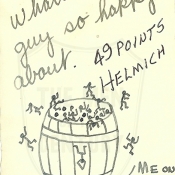 What
guy so happy
about.
49 POINTS
HELMICH
ME ON